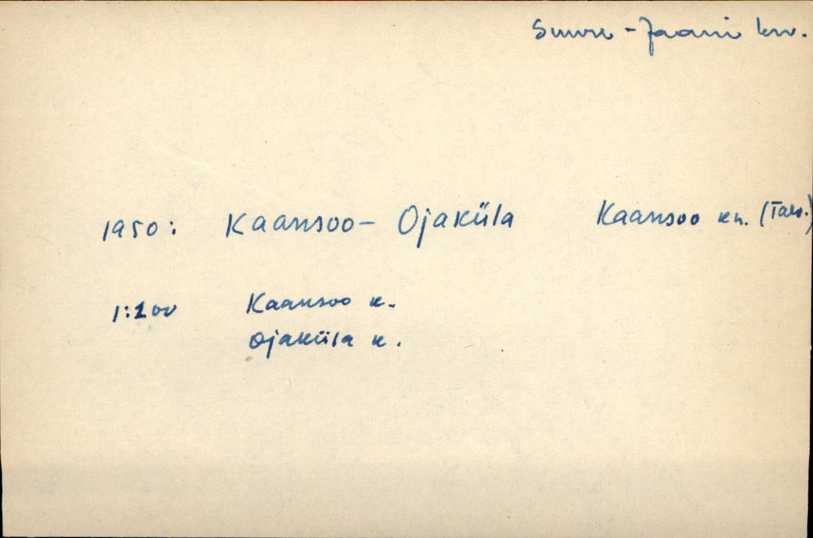 Suure-Jaani krv.
1950: Kaansoo- Ojaküla Kaansoo kn.
1:200 Kaansoo k.
Ojaküla k.